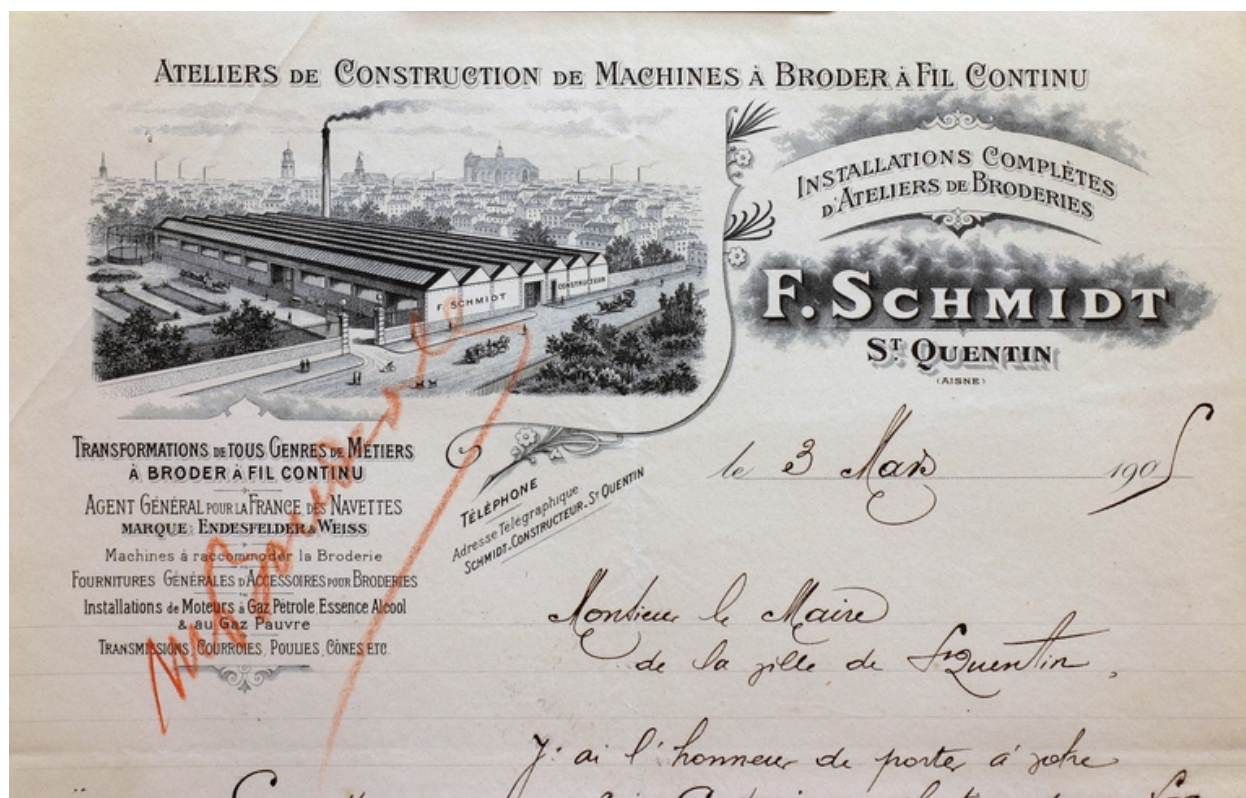 ATELIERS DE CONSTRUCTION DE MACHINES À BRODER À FIL CONTINU
INSTALLATIONS COMPLÈTES
D'ATELIERS DE BRODERIES
F. SCHMIDT
ST QUENTIN
(AISNE)
F. SCHMIDT
CONSTRUCTEUR
TRANSFORMATIONS DE TOUS GENRES DE MÉTIERS
À BRODER À FIL CONTINU
AGENT GÉNÉRAL POUR LA FRANCE DES NAVETTES
MARQUE: ENDESFELDER & WEISS
Machines à raccommoder la Broderie
FOURNITURES GÉNÉRALES D'ACCESSOIRES POUR BRODERIES
Installations de Moteurs à Gaz Pétrole Essence Alcool
& au Gaz Pauvre
TRANSMISSIONS, COURROIES, POULIES, CÔNES, ETC.
TÉLÉPHONE
Adresse Télégraphique
SCHMIDT-CONSTRUCTEUR-ST QUENTIN
le 3 Mars 1905
Monsieur le Maire
de la ville de St Quentin,
J'ai l'honneur de porter à votre